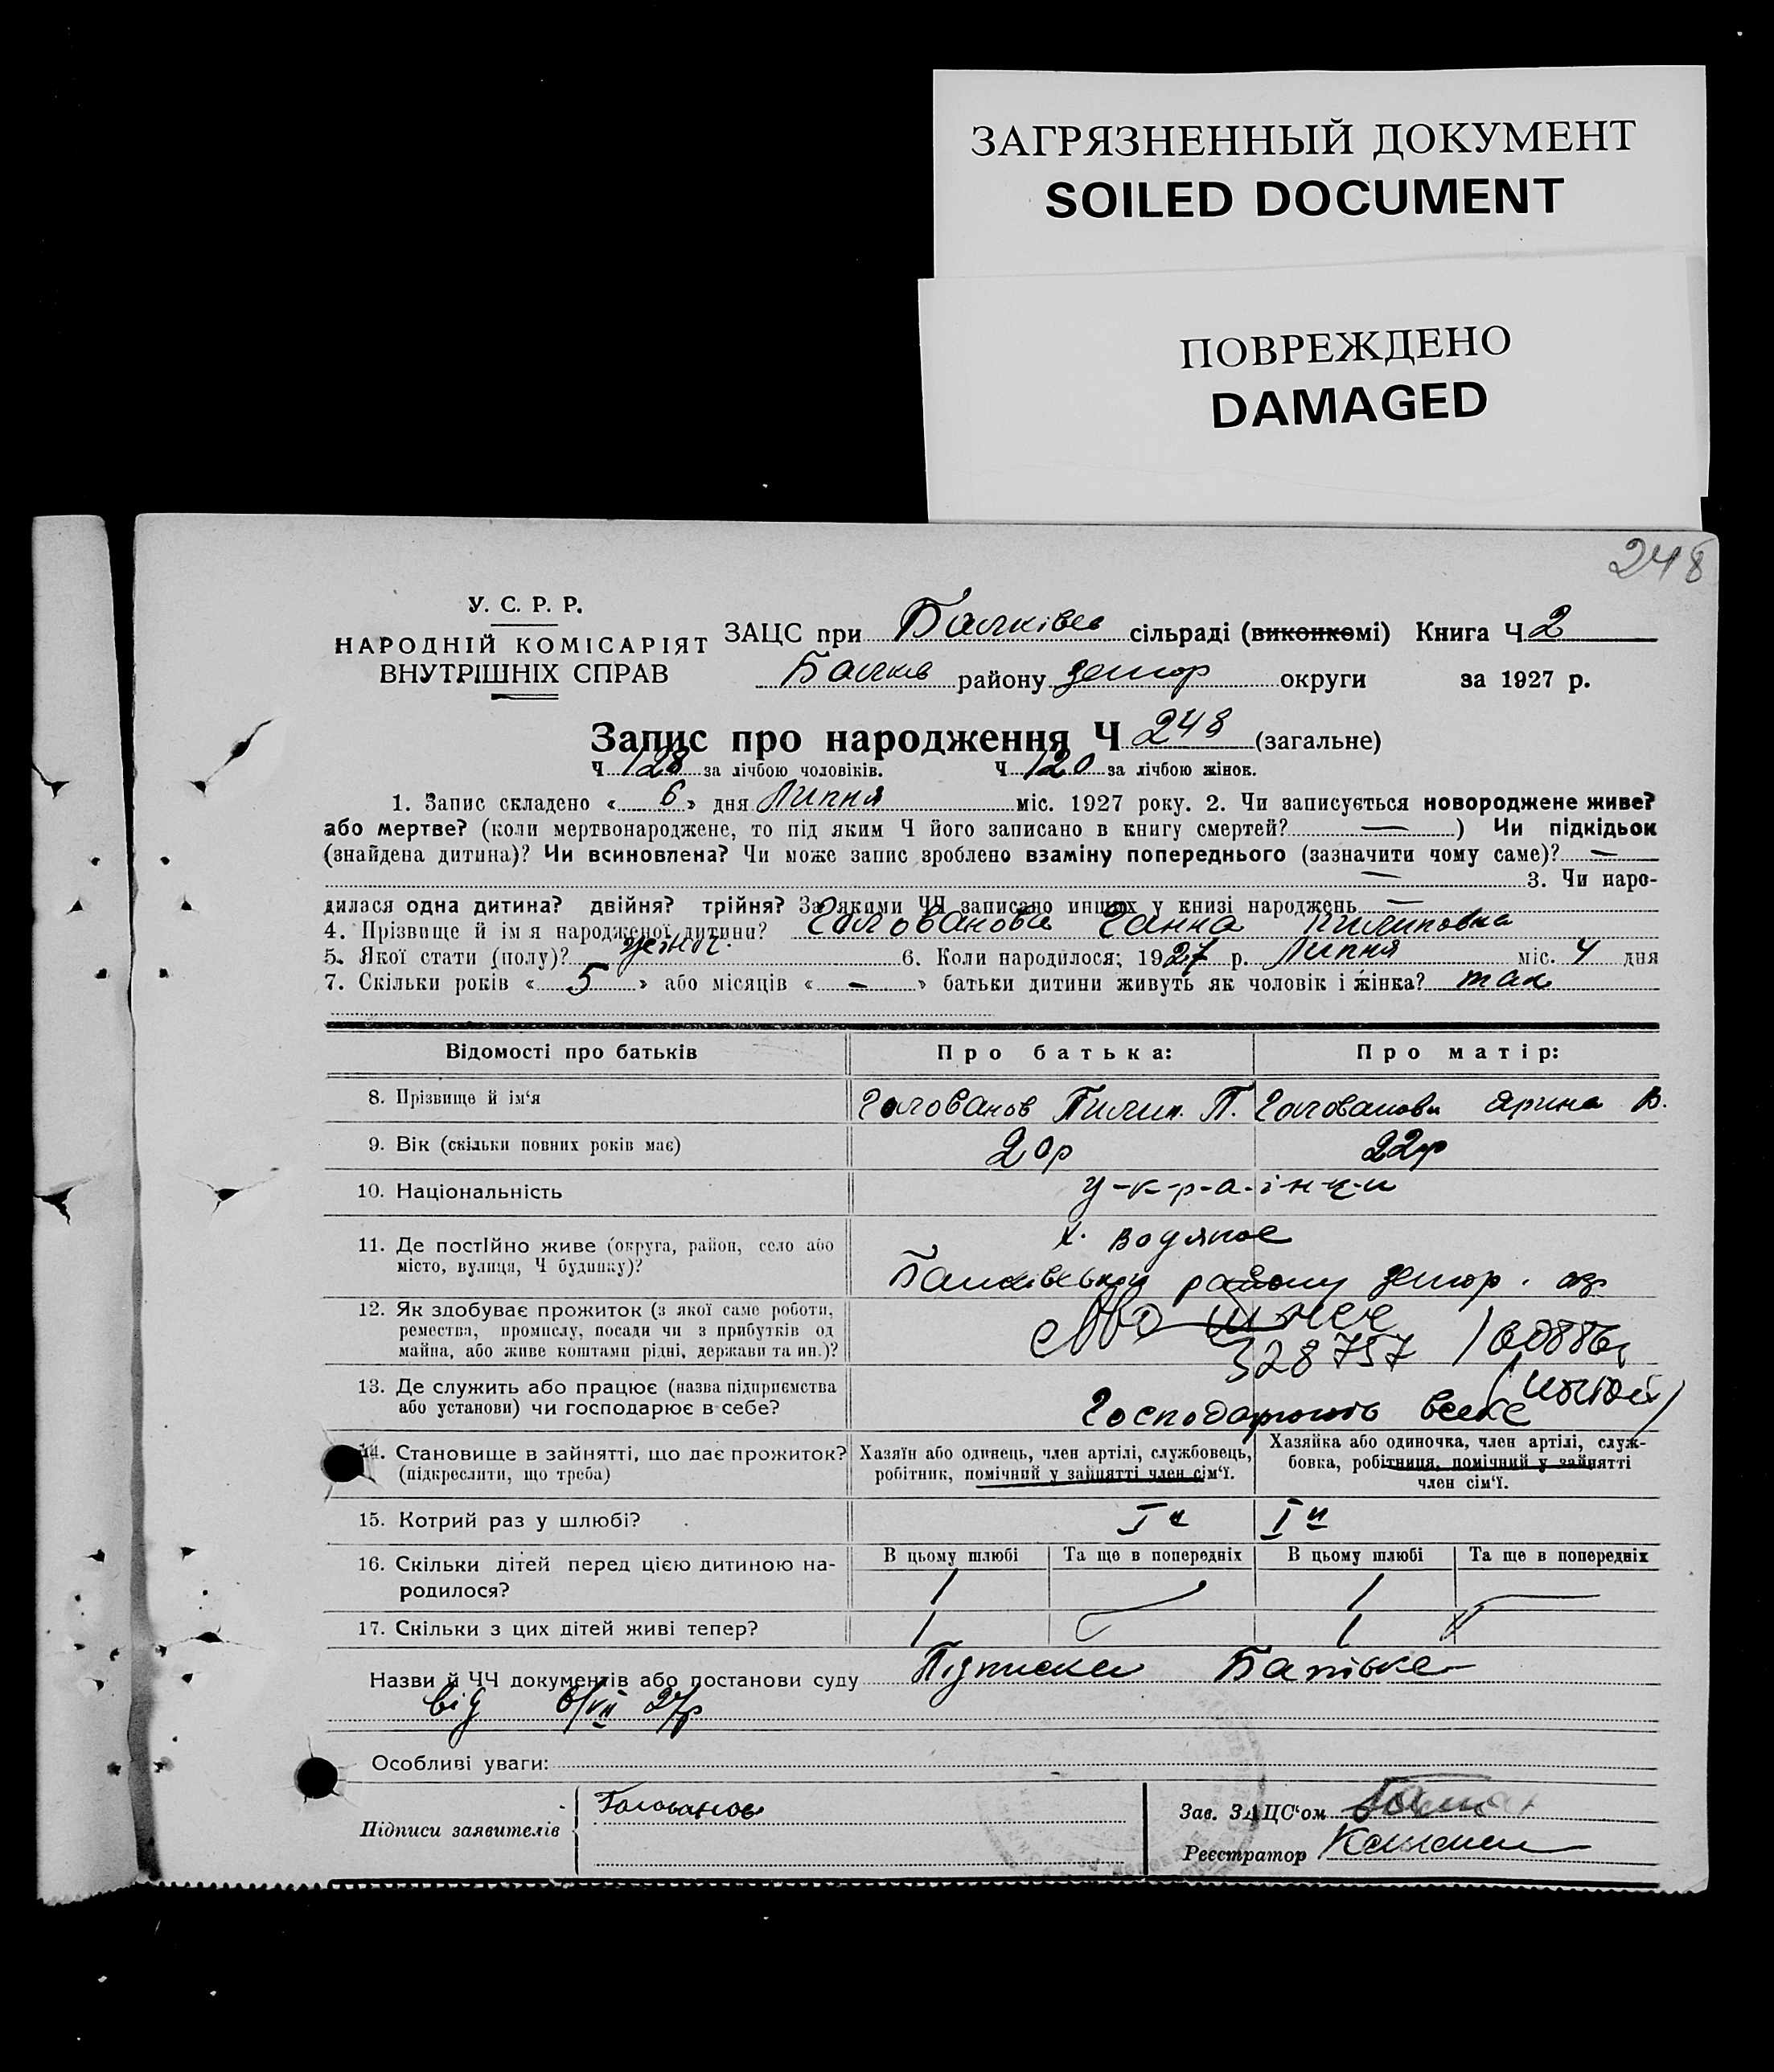 ЗАГРЯЗНЕННЫЙ ДОКУМЕНТ
SOILED DOCUMENT
ПОВРЕЖДЕНО
DAMAGED
248
У. С. Р. Р.
НАРОДНІЙ КОМІСАРІЯТ
ВНУТРІШНІХ СПРАВ
ЗАЦС при Балківсь сільраді (виконкомі) Книга Ч 2
Балків району району округи за 1927 р.
Запис про народження Ч 248 (загальне)
Ч 128 за лічбою чоловіків. Ч 120 за лічбою жінок.
1. Запис складено « 6 » дня Липня міс. 1927 року. 2. Чи записується новороджене живе?
або мертве? (коли мертвонароджене, то під яким Ч його записано в книгу смертей? — ) Чи підкідьок
(знайдена дитина)? Чи всиновлена? Чи може запис зроблено взаміну попереднього (зазначити чому саме)? —
— 3. Чи наро-
дилася одна дитина? двійня? трійня? За якими ЧЧ записано инших у книзі народжень —
4. Прізвище й ім'я народженої дитини? Голованова Ганна Пилиповна
5. Якої стати (полу)? жіноч. 6. Коли народилося; 1927 р. Липня міс. 4 дня
7. Скільки років « 5 » або місяців « - » батьки дитини живуть як чоловік і жінка? так
Відомості про батьків Про батька: Про матір:
8. Прізвище й ім'я Голованов Пилип. П. Голованова Ярина В.
9. Вік (скільки повних років має) 20р 22р
10. Національність у-к-р-а-ї-н-ц-и
11. Де постійно живе (округа, район, село або х. Водяное
місто, вулиця, Ч будинку)? району
12. Як здобуває прожиток (з якої саме роботи,
ремества, промислу, посади чи з прибутків од
майна, або живе коштами рідні, держави та ин.)? 328757
13. Де служить або працює (назва підприємства
або установи) чи господарює в себе? Господарюють
14. Становище в зайнятті, що дає прожиток? Хазяїн або одинець, член артілі, службовець, Хазяйка або одиночка, член артілі, служ-
(підкреслити, що треба) робітник, помічний у зайнятті член сім'ї. бовка, робітниця, помічний у зайнятті
член сім'ї.
15. Котрий раз у шлюбі? I й I й
16. Скільки дітей перед цією дитиною на- В цьому шлюбі Та ще в попередніх В цьому шлюбі Та ще в попередніх
родилося? 1 1
17. Скільки з цих дітей живі тепер? 1 1
Назви й ЧЧ документів або постанови суду Підписка Батька
від 6/VII 27р
Особливі уваги:
Підписи заявителів Голованов
Зав. ЗАЦС'ом
Реєстратор